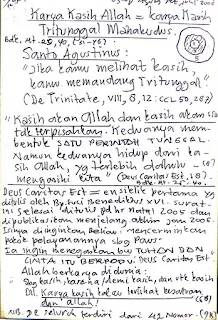 Karya Kasih Allah = Karya Kasih
Tritunggal Mahakudus.
Bdk. Mt. 25, 40, (31-45)
Santo Agustinus:
"Jika kamu melihat kasih,
kamu memandang Tritunggal"
(De Trinitate, VIII, 8, 12: CCL 50, 287)
"Kasih akan Allah dan kasih akan
tak terpisahkan. Keduanya mem-
bentuk SATU PERINTAH TUNGGAL.
Namun keduanya hidup dari ka-
sih Allah, yg terlebih dahulu
mengasihi kita" (Deus Caritas Est, 18)
Deus Caritas Est = ensiklik pertama yg
ditulis oleh Bp. Suci Benediktus XVI. Surat
ini selesai ditulis pd natal 2005 dan
dipublikasikan menjelang akhir Jan 2006.
Isinya diinginkan beliau: mencerminkan
pokok pelayanannya sbg Paus
Ia ingin mengatakan bhw TUHAN DAN
CINTA ITU BERPADU: Deus Caritas Est.
Allah berkarya di dunia:
Sbg kasih, karena/demi kasih, dan utk kasih
Dll. Karya kasih selalu terlihat kesatuan
dan Allah
NB. DC seluruh terdiri dari 42 Nomor.